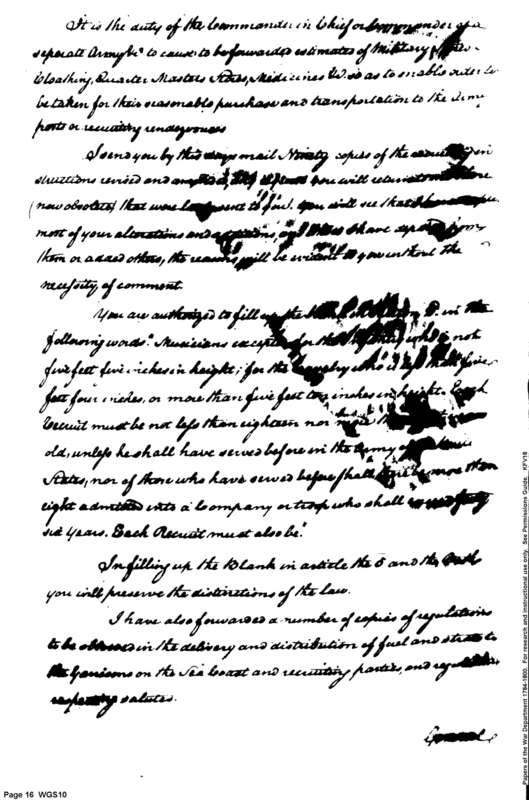 It is the duty of the Commander in Chief or Commander of a
seperate Army &c to cause to be forwarded estimates of Military
Cloathing, Quarter Masters Stores, Medicines &c so as to enable order to
be taken for their seasonable purchase and transportation to the Army
posts or recruiting rendezvouses
I send you by this days mail Ninety copies of the in
structions revised and you will return
(now obsolete) that were sent to you. You will see that I
most of your alterations and and I have from
them or added others, the reasons will be evident to you without the
necessity of comment
You are authorized to fill up the in the
following words: "Musicians excepted for the who is not
five feet five inches in height; for the Cavalry who is less than five
feet four inches, or more than five feet ten inches in height. Each
Recruit must be not less than eighteen nor more
old, unless he shall have served before in the Army of
States, nor of those who have served before shall more than
eight admitted into a Company or troop who shall forty
six years. Each Recruit must also be"
In filling up the Blank in article the 5 and the
you will preserve the distinctions of the law.
I have also forwarded a number of copies of regulations
to be observed in the delivery and distribution of fuel and straw to
the Garrisons on the Sea Coast and recruiting parties, and
respecting salutes.
General
Page 16 WGS10
Papers of the War Department 1784-1800. For research and instructional use only. See Permissions Guide. KFV18